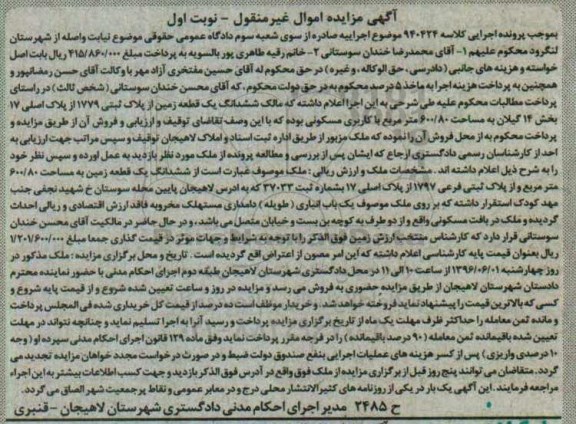 آگهی مزایده اموال غیرمنقول - نوبت اول
بموجب پرونده اجرایی کلاسه ۹۴۰۴۲۴ موضوع اجراییه صادره از سوی شعبه سوم دادگاه عمومی حقوقی موضوع نیابت واصله از شهرستان
لنگرود محکوم علیهم ۱- آقای محمدرضا خندان سوستانی ۲- خانم رقیه طاهری پور بالسویه به پرداخت مبلغ ۴۱۵/۸۶۰/۰۰۰ ریال بابت اصل
خواسته و هزینه های جانبی (دادرسی، حق الوکاله، وغیره) در حق محکوم له آقای حسین مفتخری آزاد مهر با وکالت آقای حسن رمضانپور و
همچنین به پرداخت هزینه اجرا به ماخذ ۵ درصد محکوم به در حق دولت محکوم، که آقای محسن خندان سوستانی (شخص ثالث) در راستای
پرداخت مطالبات محکوم علیه طی شرحی به این اجرا اعلام داشته که مالک ششدانگ یک قطعه زمین از پلاک ثبتی ۱۷۷۹ از پلاک اصلی ۱۷
بخش ۱۴ گیلان به مساحت ۶۰۰/۸۰ متر مربع با کاربری مسکونی بوده که با این وصف تقاضای توقیف و ارزیابی و فروش آن از طریق مزایده و
پرداخت محکوم به از محل فروش آن را نموده که ملک مزبور از طریق اداره ثبت اسناد و املاک لاهیجان توقیف و سپس مراتب جهت ارزیابی به
احد از کارشناسان رسمی دادگستری ارجاع که ایشان پس از بررسی و مطالعه پرونده از ملک مورد نظر بازدید به عمل اورده و سپس نظر خود
را به شرح ذیل اعلام داشته اند. مشخصات ملک و ارزش ریالی: ملک موصوف عبارت است از ششدانگ یک قطعه زمین به مساحت ۶۰۰/۸۰
متر مربع و از پلاک ثبتی فرعی ۱۷۹۷ از پلاک اصلی ۱۷ بشماره ثبت ۳۷۰۳۳ که به ادرس لاهیجان پایین محله سوستان خ شهید نجفی جنب
مهد کودک استقرار داشته که بر روی ملک موصوف یک باب انباری (طویله) دامداری مستهلک مخروبه فاقد ارزش اقتصادی و ریالی احداث
گردیده و ملک در بافت مسکونی واقع و از دو طرف به کوچه بن بست و خیابان متصل می باشد، و در حال حاضر در مالکیت آقای محسن خندان
سوستانی قرار دارد که کارشناس منتخب ارزش زمین فوق الذکر را با توجه به شرایط و جهات موثر در قیمت گذاری جمعا مبلغ ۱/۲۰۱/۶۰۰/۰۰۰
ریال بعنوان قیمت پایه کارشناسی اعلام داشته که این امر مصون از اعتراض واقع گردیده است. تاریخ و محل برگزاری مزایده: ملک مذکور در
روز چهارشنبه ۱۳۹۶/۰۶/۰۱ از ساعت ۱۰ الی ۱۱ در محل دادگستری شهرستان لاهیجان طبقه دوم اجرای احکام مدنی با حضور نماینده محترم
دادستان شهرستان لاهیجان از طریق مزایده حضوری به فروش می رسد و مزایده در روز و ساعت تعیین شده شروع و از قیمت پایه شروع و
کسی که بالاترین قیمت را پیشنهاد نماید فروخته خواهد شد. و خریدار موظف است ده درصد از قیمت کل خریداری شده فی المجلس پرداخت
و مانده ثمن معامله را حداکثر ظرف مهلت یک ماه از تاریخ برگزاری مزایده پرداخت و رسید آنرا به اجرا تسلیم نماید و چنانچه نتواند در مهلت
تعیین شده باقیمانده ثمن معامله (۹۰ درصد باقیمانده) را در فرجه مقرر پرداخت نماید وفق ماده ۱۲۹ قانون اجرای احکام مدنی سپرده او (وجه
۱۰ درصدی واریزی) پس از کسر هزینه های عملیات اجرایی بنفع صندوق دولت ضبط و در صورت درخواست مجدد خواهان مزایده تجدید می
گردد. متقاضیان می توانند پنج روز قبل از برگزاری مزایده از ملک فوق واقع در آدرس فوق الذکر بازدید و جهت کسب اطلاعات بیشتر به این اجراء
مراجعه فرمایند. این آگهی یک بار در یکی از روزنامه های کثیرالانتشار محلی درج و در معابر عمومی و نقاط پرجمعیت شهر الصاق می گردد.
ح ۲۴۸۵ مدیر اجرای احکام مدنی دادگستری شهرستان لاهیجان - قنبری